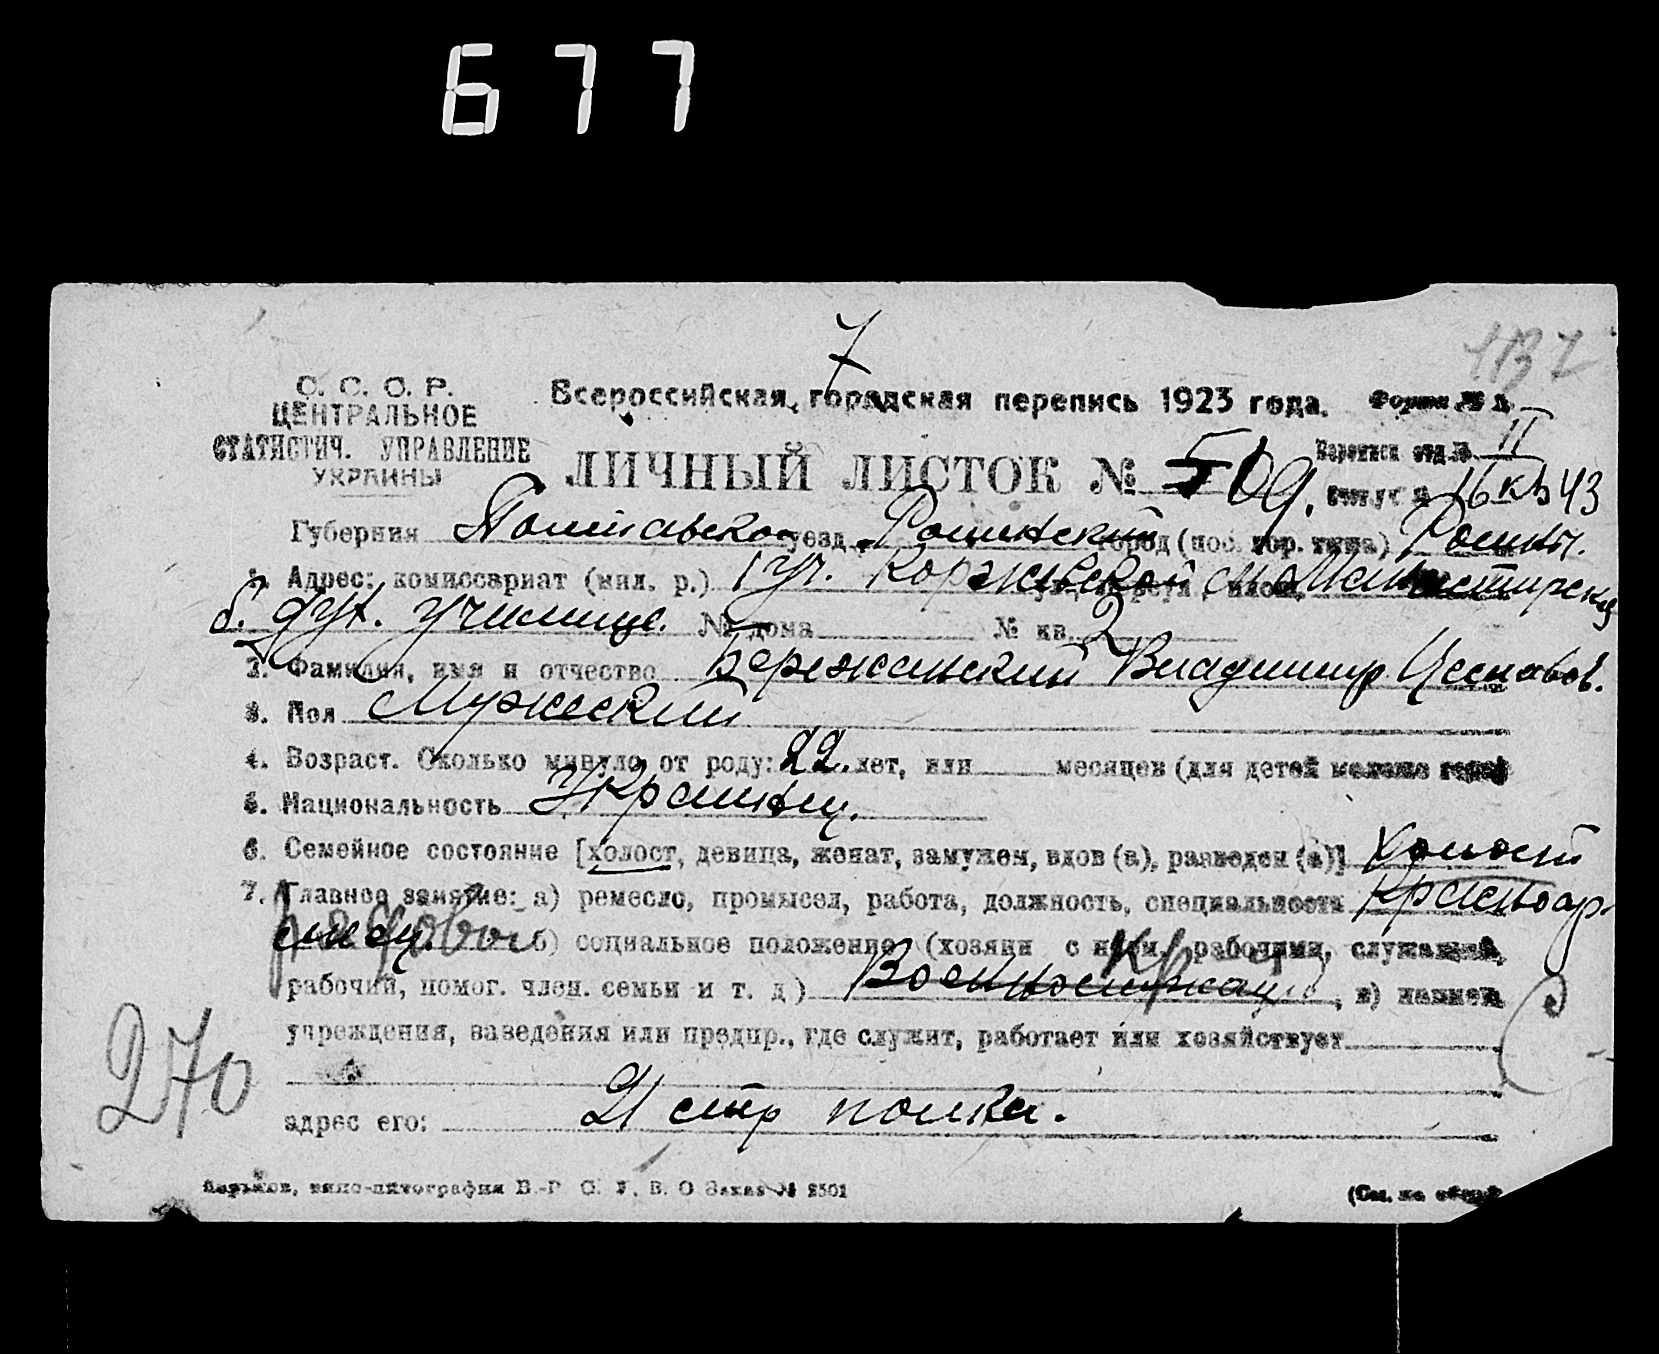 677
7
1137
С. С. С. Р.
ЦЕНТРАЛЬНОЕ
СТАТИСТИЧ. УПРАВЛЕНИЕ
УКРАИНЫ
Всероссийская городская перепись 1923 года. Форма №
ЛИЧНЫЙ ЛИСТОК № 509. Переписн отд. № II
16 кв 43
Губерния Полтавско уезд Роменский город (пос. гор. типа) Ромны.
1. Адрес: комиссариат (мил. р.) 1 уч.
б. дух. училище. № дома № кв. 2
2. Фамилия, имя и отчество Бережанский Владимир
3. Пол Мужеский
4. Возраст. Сколько минуло от роду: 22. лет, или месяцев (для детей моложе года)
5. Национальность Украинец.
6. Семейное состояние [холост, девица, женат, замужем, вдов (а), разведен (а)] Холост
7. Главное занятие: а) ремесло, промысел, работа, должность, специальность Красноар-
меец. б) социальное положение (хозяин с наем. рабочими, служащий,
рабочий, помог. член. семьи и т. д.) Военнослужащ , в) назнач.
учреждения, заведения или предпр., где служит, работает или хозяйствует
270
адрес его: 21 стр полка.
Харьков, типо-литография В.-Р. С. У. В. О Заказ № 2501
(См. на обор.)